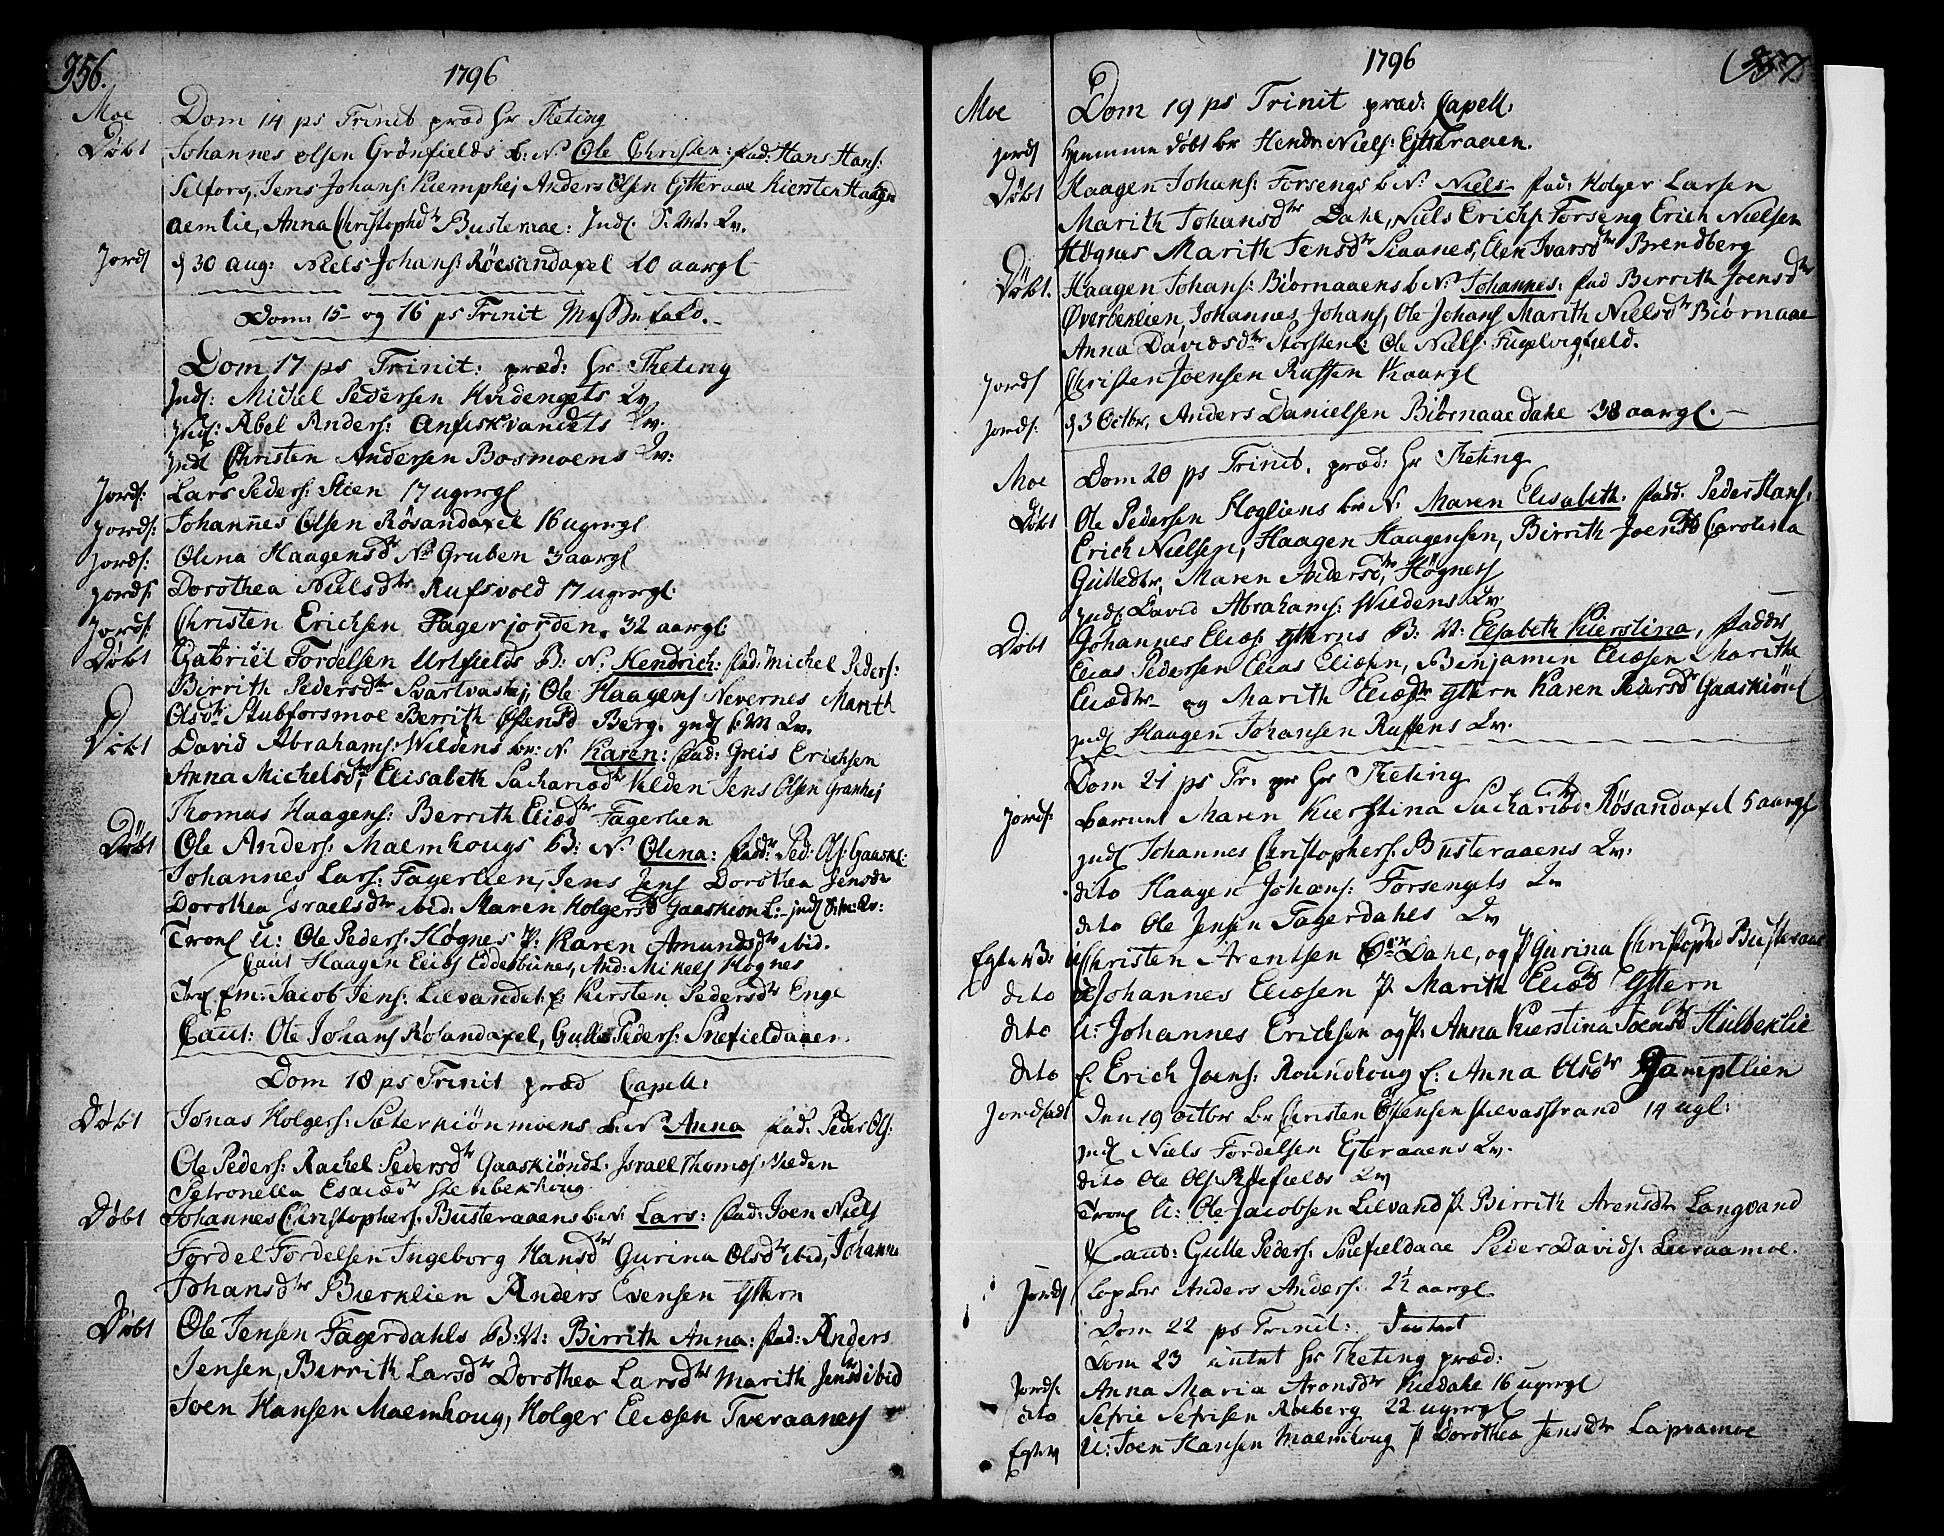 356.
1796
Moe Dom 14 ps Trinit præd Hr Theting
Døbt Johannes Olsen Grönfields b: N. Ole Christen: fad: Hans Hans:
Selfors, Jens Johans: Kiemphei Anders Olsen Ytteraae Kiersten Haagn
aemlie, Anna Christophdtr Busteraae: Jndl. S. M. Qv.
Jords d 30 aug: Niels Johans: Röesandaxel 20 aargl
Dom: 15 og 16 ps Trinit Messefald.
Dom 17 ps Trinit: præd: Hr Theting
Jndl: Michel Pedersen Hvidengets Qv.
Jndl: Abel Anders: Anfiskvandets Qv.
Jndl Christen Andersen Bosmoens Qv:
Jords: Lars Peders: Stien 17 ugrgl
Jords: Johannes Olsen Rösandaxel 16 ugrgl
Jords: Olina Haagensdtr N. Gruben 3 aargl
Jords: Dorothea Nielsdtr Rufsvold 17 ugrgl.
Jords: Christen Erichsen Fagerjorden. 32 aargl:
Døbt Gabriel Tordelsen Urtfields B: N. Hendrich: fad: Michel Peders:
Birrith Pedersdtr Svartvashei, Ole Haagens Nevernes Marith
Olsdtr Stubforsmoe Berrith Ostensd Berg. Jndl S M Qv.
Døbt David Abrahams: Wildens br: N. Karen: fad: Greis Erichsen
Anna Michelsdtr, Elisabeth Sachariædtr Velden Jens Olsen Granhei
Thomas Haagens: Berrith Eliædtr Fagerlien
Døbt Ole Anders: Maemhougs B: N. Olina: fadr: Ped: Ols: Gaaski:
Johannes Lars: Fagerlien, Jens Jens Dorothea Jensdtr
Dorothea Israelsdtr ibid: Maren Holgersd Gaaskionl: Jndl S: m: Qv:
Trol U: Ole Peders: Høgnes P: Karen Amundsdtr ibid.
Caut Haagen Elias Edderbünes, And: Mikels Høgnes
Trol Em: Jacob Jens: Lilvandet: E: Kirsten Pedersdtr Enge
Caut: Ole Johans Rösandaxel, Gulle Peders: Snefieldaaen.
Dom 18 ps Trinit præd Capell:
Døbt Jonas Holgers: Sæterkiönmoens b: N. Anna fad: Peder Ols:
Ole Peders: Rachel Pedersdtr Gaaskiöndl. Jsrael Thomæs: Velden
Petronella Esaiædtr Stenbekhoug.
Døbt Johannes Christophers: Busteraaens b: N: Lars: fad: Joen Niels
Tordel Tordelsen Ingeborg Hansdtr Gurina Olsdtr ibid, Johanna
Johansdtr Bierklien Anders Evensen Yttern
Døbt Ole Jensen Fagerdahls B: N: Birrith Anna: fad: Anders
Jensen, Berrith Larsdtr Dorothea Larsdtr Marith Jensd ibid
Joen Hansen Maemhoug, Holger Eliæsen Tveraanes
1796
357
Moe Dom 19 ps Trinit præd: Capell:
Jords Hjemme döbt br Hendr: Niels: Ytteraaen.
Døbt Haagen Johans: Forsengs b N. Niels fad: Holger Larsen
Marith Johansdtr Dahl, Niels Erichs Forseng Erich Nielsen
Høgnes Marith Jensdtr Skaanes, Elen Ivarsdtr Brendberg
Døbt. Haagen Johans: Biörnaaens b N: Johannes: fad Birrith Joensdtr
Øverbeklien, Johannes Johans, Ole Johans Marith Nielsdtr Biörnaae
Anna Davidsdtr Storstenl: Ole Niels: Fugelvigfield.
Jords Christen Joensen Russen
Jords: d 3 Octbr, Anders Danielsen Biörnaaedahl 38 aargl.
Moe Dom 20 ps Trinit. præd: Hr Theting
Døbt Ole Pedersen Skoglíens br N. Maren Elisabeth. fadd. Peder Hans:
Erich Nielsen, Haagen Haagensen, Birrith Joensd Carolina
Gulledtr, Maren Andersdtr, Høgnes
Jndl David Abrahams: Wildens Qv
Døbt Johannes Eliæs Ytterns B. N: Elsabeth Kierstina, fadder
Elias Pedersen Elias Eliæsen, Benjamin Eliæsen Marithe
Eliædtr og Marith Eliædtr Yttern Karen Pedersdtr Gaaskiönl
Jndl Haagen Johansen Russens Qv.
Dom 21 ps Tr: pr Hr Theting
Jords: barnet Maren Kierstina Sachariædtr: Rösandaxel 5 aargl
Jndl Johannes Christophers: Busteraaens Qv:
dito Haagen Johans: Forsengets Qv
dito Ole Jensen Fagerdahls Qv
Egtev B: U Christen Arentsen Dahl, og P Gurina Christophd Busteraae
dito U Johannes Eliæsen P. Marith Eliædtr Yttern
dito U: Johannes Erichsen og P: Anna Kierstina Joensdtr Hulbeklie
dito E. Erich Joens: Raundhoug E: Anna Olsdtr Jamptlien
Jordfæst den 19 octbr br Christen Ostensen Stevasstrand 14 ugl:
Jndl Niels Tordelsen Ytteraaens Qv.
dito Ole Ols: Röefields Qv
Trol U: Ole Jacobsen Lilvand P. Birrith Arensdtr Langvand
Caut: Gulle Peders: Snefieldaae Peder Davids: Leeraamoe.
Jords Lop br Anders Anders: 2½ aargl
Dom 22 ps Trinit:
Dom 23 Hr Theting præd:
Jords: Anna Maria Aronsdtr Kiedahl 16 ugrgl
dito Sefrie Sefrisen Raeberg 22 ugrgl
Egtev U: Joen Hansen Maemhoug P Dorothea Jensdtr Lapramoe